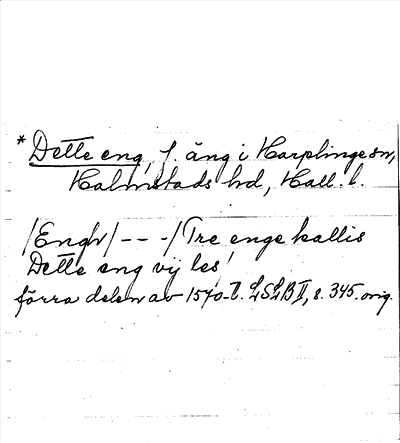 * Dette eng, f. äng i Harplinge sn,
Halmstads hd, Hall. l.
/Engh/ - - -/ Tre enge kallis
Dette eng vij les!
förra delen av 1570-t. LSLB II, s. 345. orig.